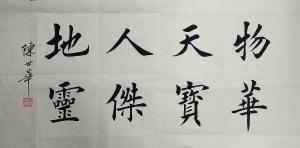 物華
天寶
人傑
地靈
陳世華